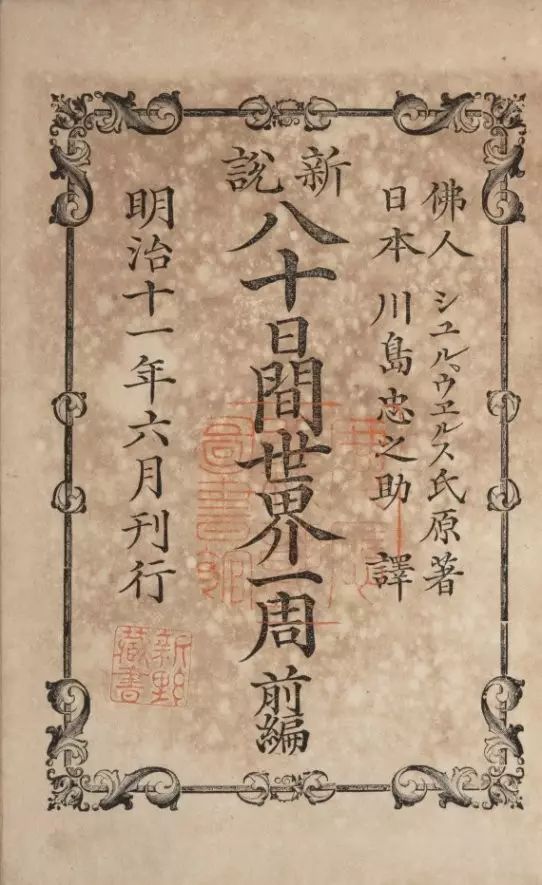 佛人 シユル、ウヱルス氏原著
日本 川島忠之助 譯
新説
八十日間世界一周 前編
明治十一年六月刊行
新野
藏書